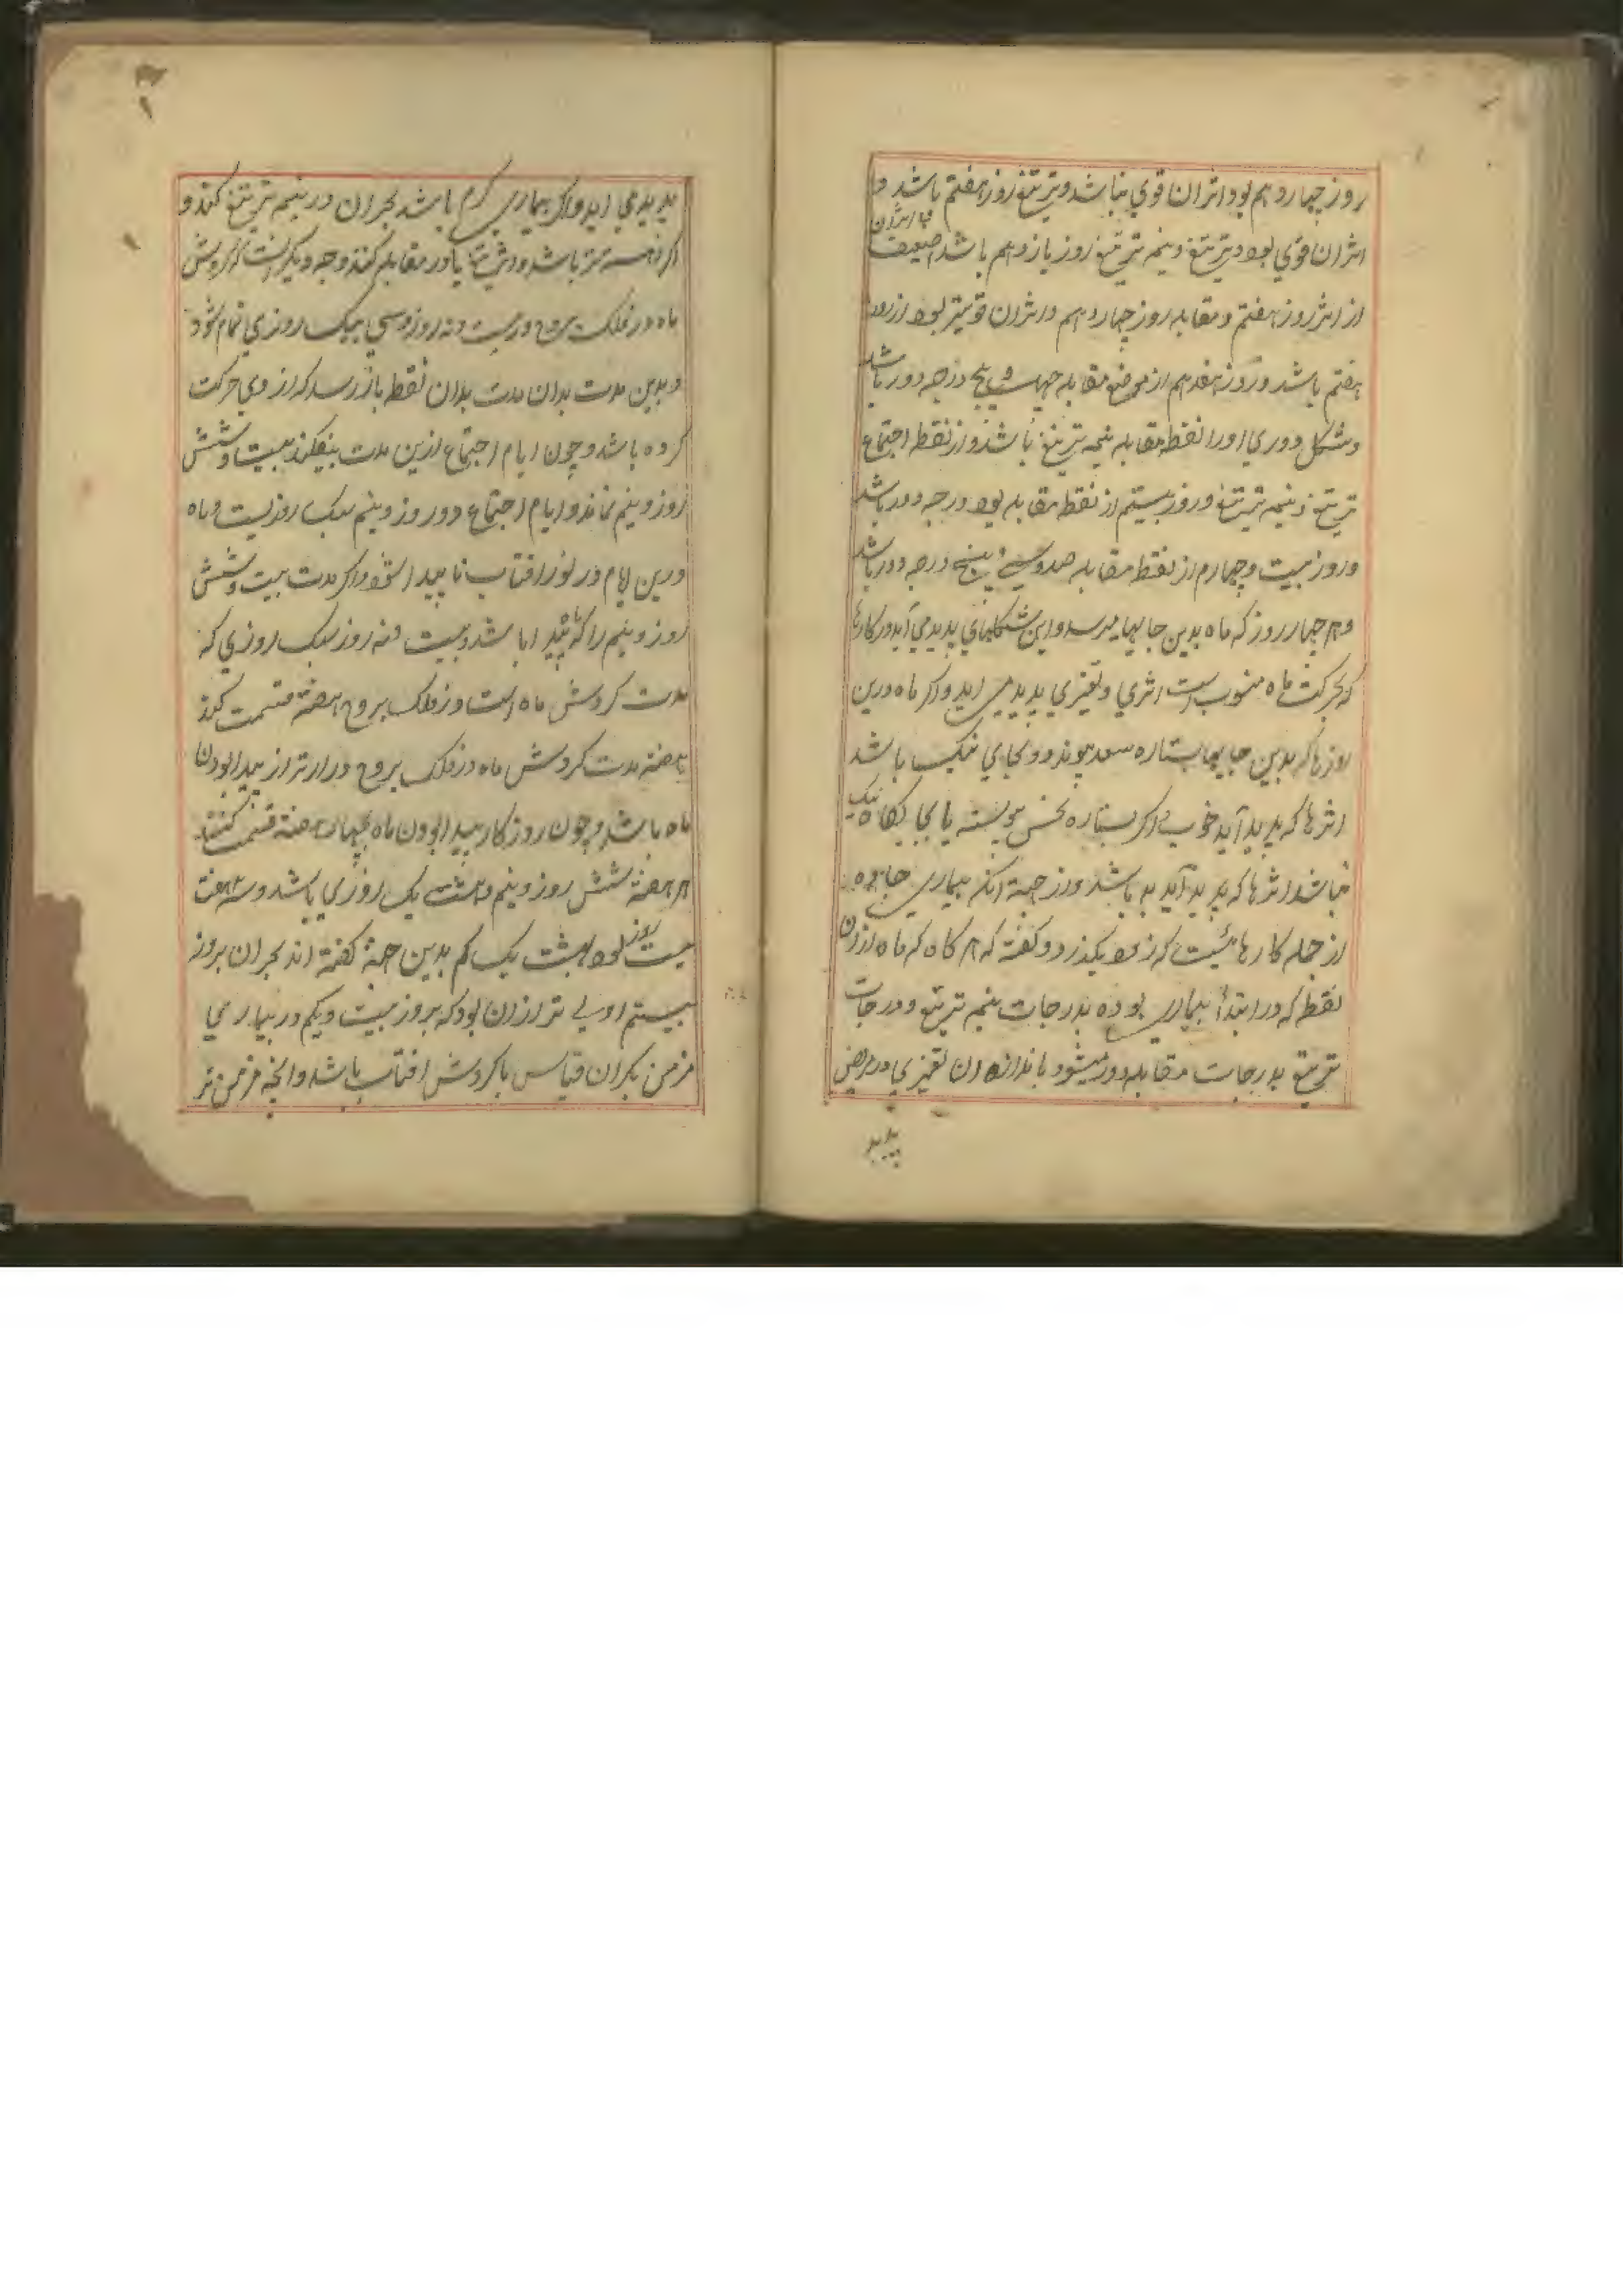 روز چهاردهم بود و اثر آن قوی نباشد و تربیع روز هفتم باشد و
اثر آن قوی بود و تربیع و نیمه تربیع روز یازدهم باشد و اثر آن ضعیف
از اثر روز هفتم و مقابله روز چهاردهم و اثر آن قویتر بود از روز
هفتم باشد و روز هفدهم از موضع مقابله چهل و پنج درجه دور باشد
و شکل دوری او را نقطه مقابله نیمه تربیع باشد و از نقطه اجتماع
تربیع و نیمه تربیع و روز بیستم از نقطه مقابله نود درجه دور باشد
و روز بیست و چهارم از نقطه مقابله صد و سی و پنج درجه دور باشد
و هر چهار روز که ماه بدین جایها میرسد و این شکلهای پدید می آید در کارها
که بحرکت ماه منسوب است اثری و تغیری پدید می اید و اکر ماه درین
روزها که بدین جایها بستاره سعد پیوندد و بجای نیک باشد
اثرها که پدید آید خوب و اکر بستاره نحس پیوسته یا بجایکاه نیک
نباشد اثرها که پدید آید بد باشد و از جهة انکه بیماری
از جمله کارهائیست که زود بکذرد و کفته که هر کاه که ماه از ان
نقطه که در ابتدأ بیماری بوده بدرجات نیمه تربیع و درجات
تربیع بدرجات مقابله دور میشود باندازه ان تغیری در مرض
پدید
پدید می اید و اکر بیماری کرم باشد بحران در نیمه تربیع کند و
اکر اهسته تر باشد در تربیع یا در مقابله کند و وجه دیکر انست که کردش
ماه در فلک بروج در بیست و نه روز و سی یک روزی تمام شود
و بدین مدت بدان مدت بدان نقطه باز رسد که از وی حرکت
کرده باشد و چون ایام اجتماع ازین مدت بیفکند بیست و شش
روز و نیم نماند و ایام اجتماع دو روز و نیم یک روزیست و ماه
درین ایام در نور افتاب ناپیدا شود و اکر مدت بیست و شش
روز و نیم را که پیدا باشد و بیست و نه روز یک روزی که
مدت کردش ماه است در فلک بروج هفته قسمت کند
هفته مدت کردش ماه در فلک بروج درازتر از پیدا بودن
ماه باشد و چون روزکار پیدا بودن ماه بچهار هفته قسمت کنند
هر هفته شش روز و نیم و هشت یک روزی باشد و سه هفته
بیست روز بود هشت یک کم بدین جهة کفته اند بحران بروز
بیستم اولی تر از ان بود که بروز بیست و یکم در بیماری
مزمن بحران قیاس با کردش افتاب باشد و انچه مزمن تر